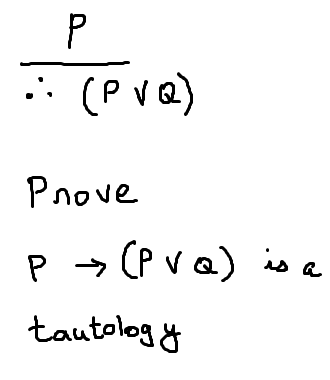 P
∴ (P ∨ Q)
Prove
P → (P ∨ Q) is a
tautology